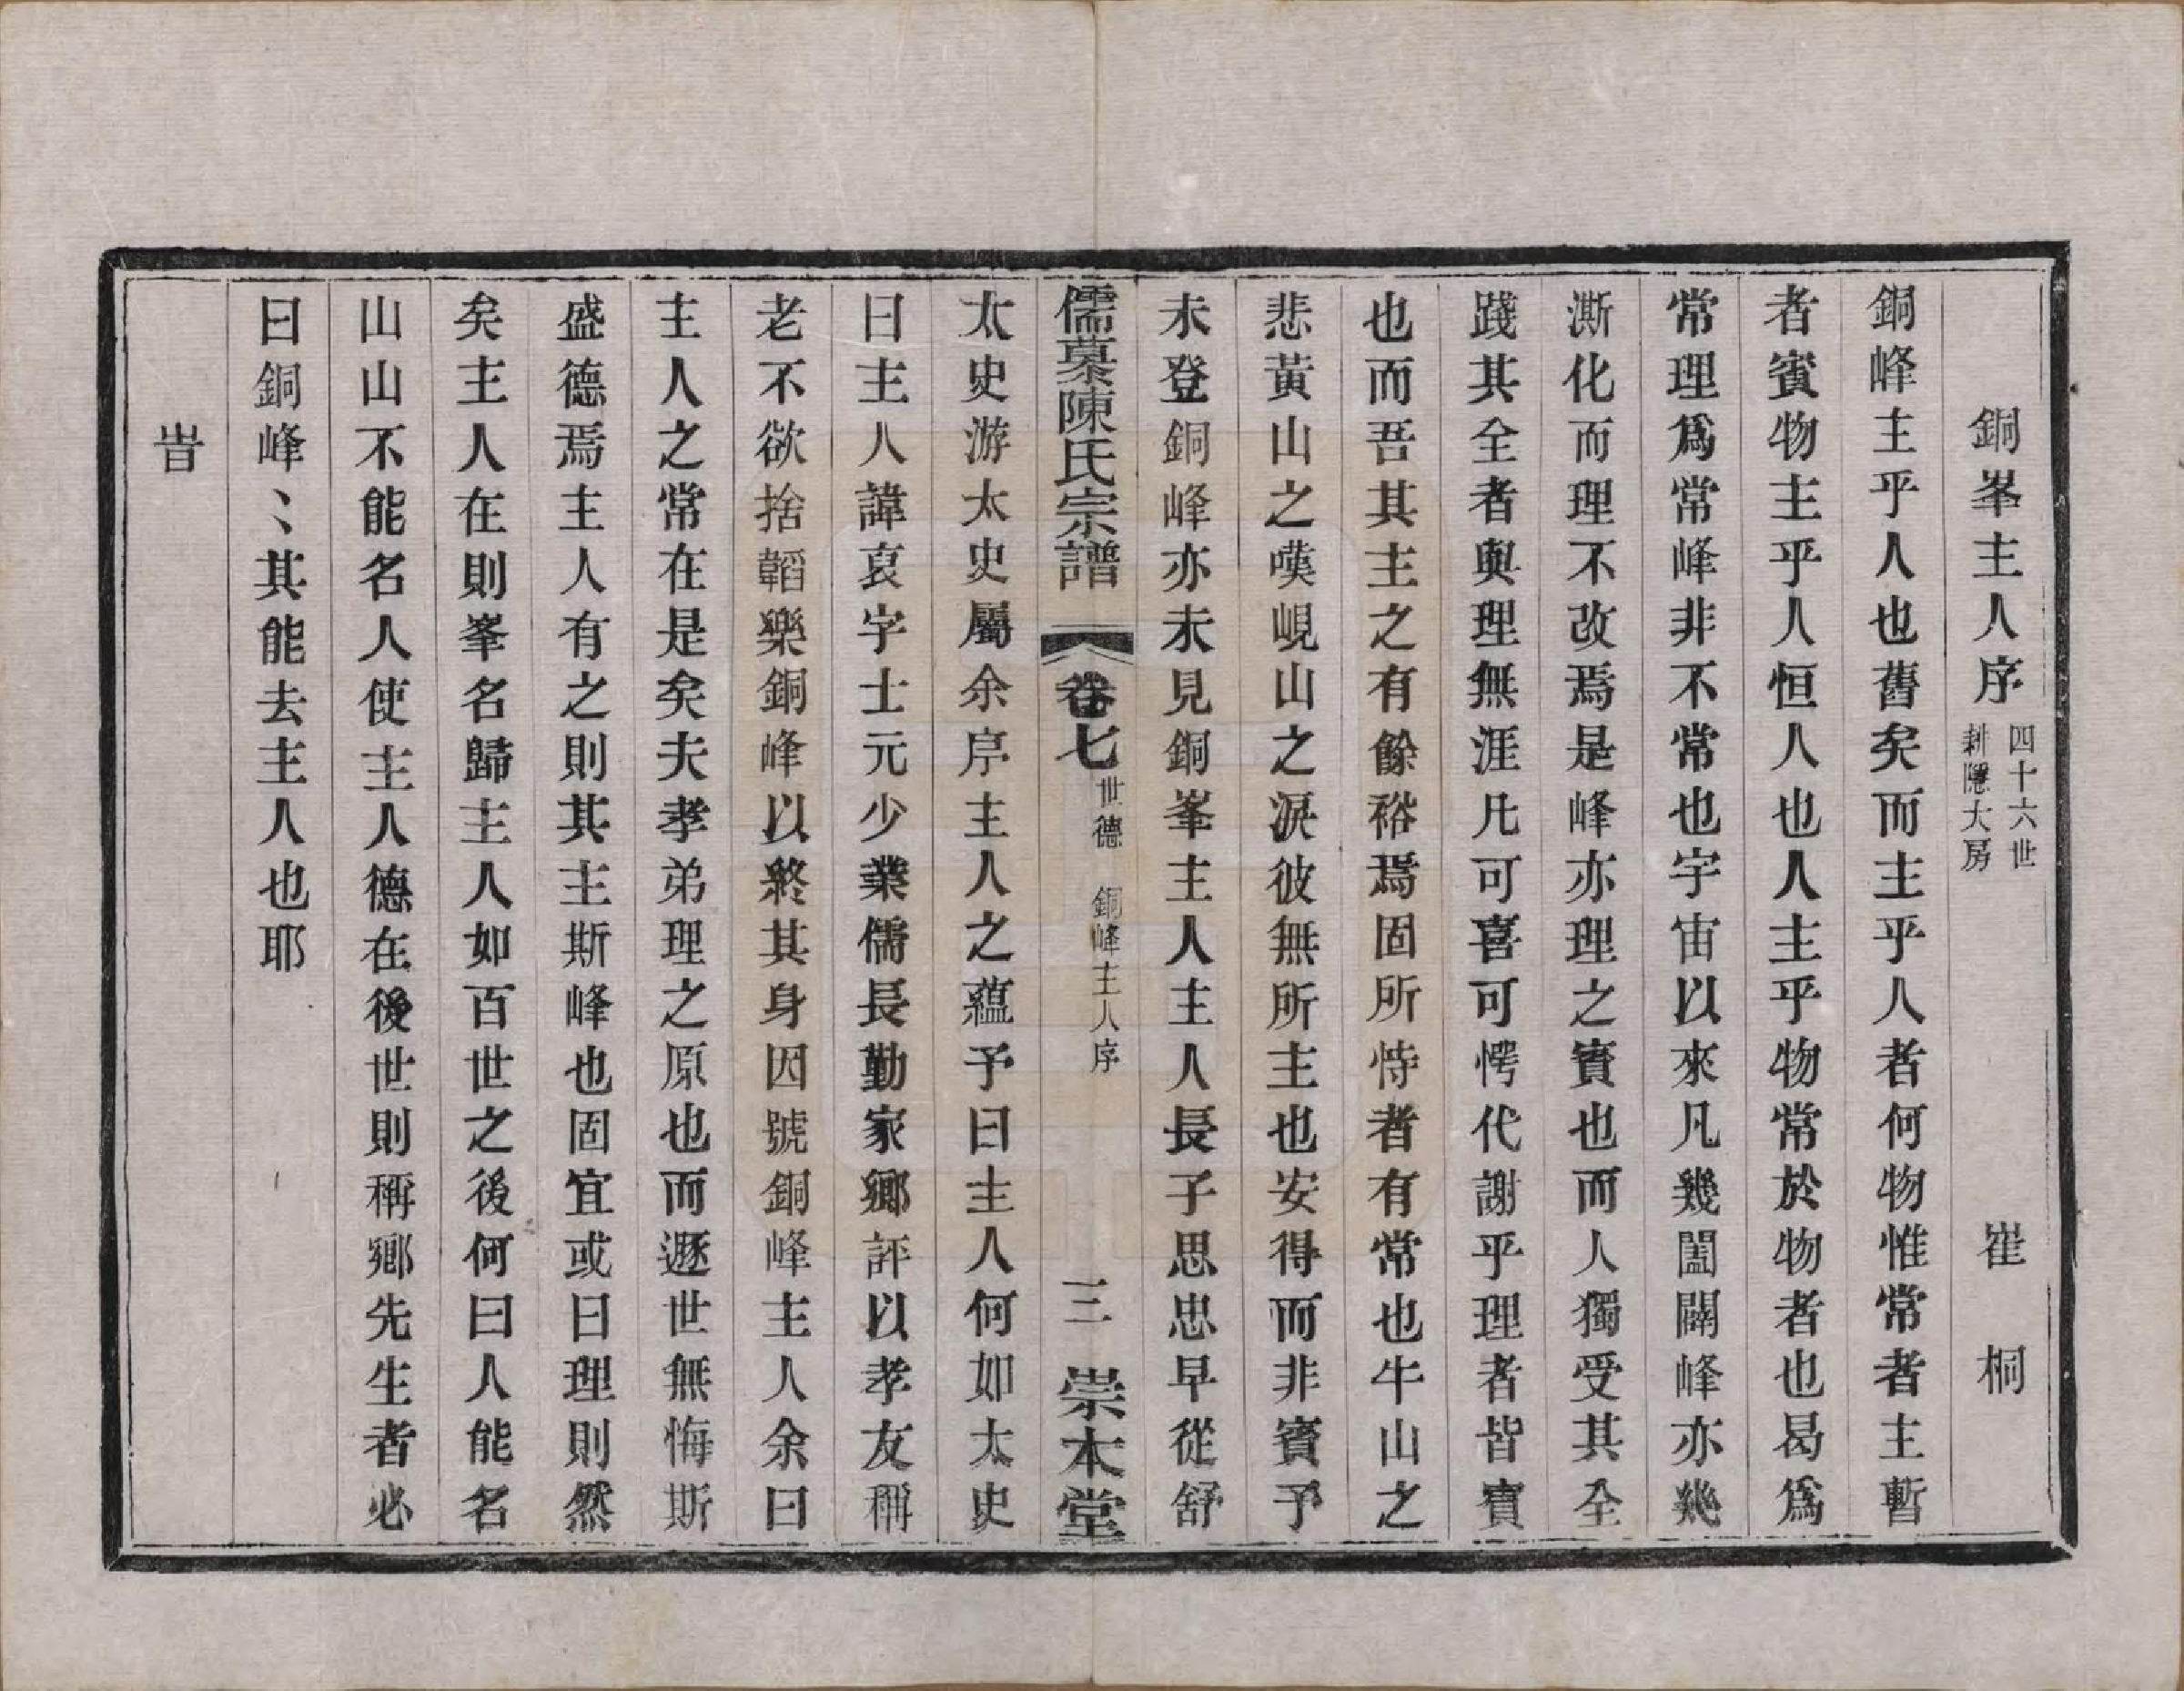 銅峯主人序 四十六世 耕隱大房 崔桐
銅峰主乎人也舊矣而主乎人者何物惟常者主暫
者賓物主乎人恒人也人主乎物常於物者也曷爲
常理爲常峰非不常也宇宙以來凡幾闔闢峰亦幾
澌化而理不改焉是峰亦理之賓也而人獨受其全
踐其全者與理無涯凡可喜可愕代謝乎理者皆賓
也而吾其主之有餘裕焉固所恃者有常也牛山之
悲黃山之嘆峴山之淚彼無所主也安得而非賓予
未登銅峰亦未見銅峯主人主人長子思忠早從舒
儒慕陳氏宗譜 卷七 世德 銅峰主人序 三 崇本堂
太史游太史屬余序主人之蘊予曰主人何如太史
曰主人諱哀字士元少業儒長勤家鄉評以孝友稱
老不欲捨韜樂銅峰以終其身因號銅峰主人余曰
主人之常在是矣夫孝弟理之原也而遯世無悔斯
盛德焉主人有之則其主斯峰也固宜或曰理則然
矣主人在則峯名歸主人如百世之後何曰人能名
山山不能名人使主人德在後世則稱鄉先生者必
曰銅峰丶丶其能去主人也耶
旹